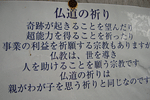 仏道の祈り
奇跡が起きることを望んだり
超能力を得ることを祈ったり
事業の利益を祈願する宗教もありますが
仏教は、世を導き
人を助けることを願う宗教です
仏道の祈りは
親がわが子を思う祈りと同じなのです